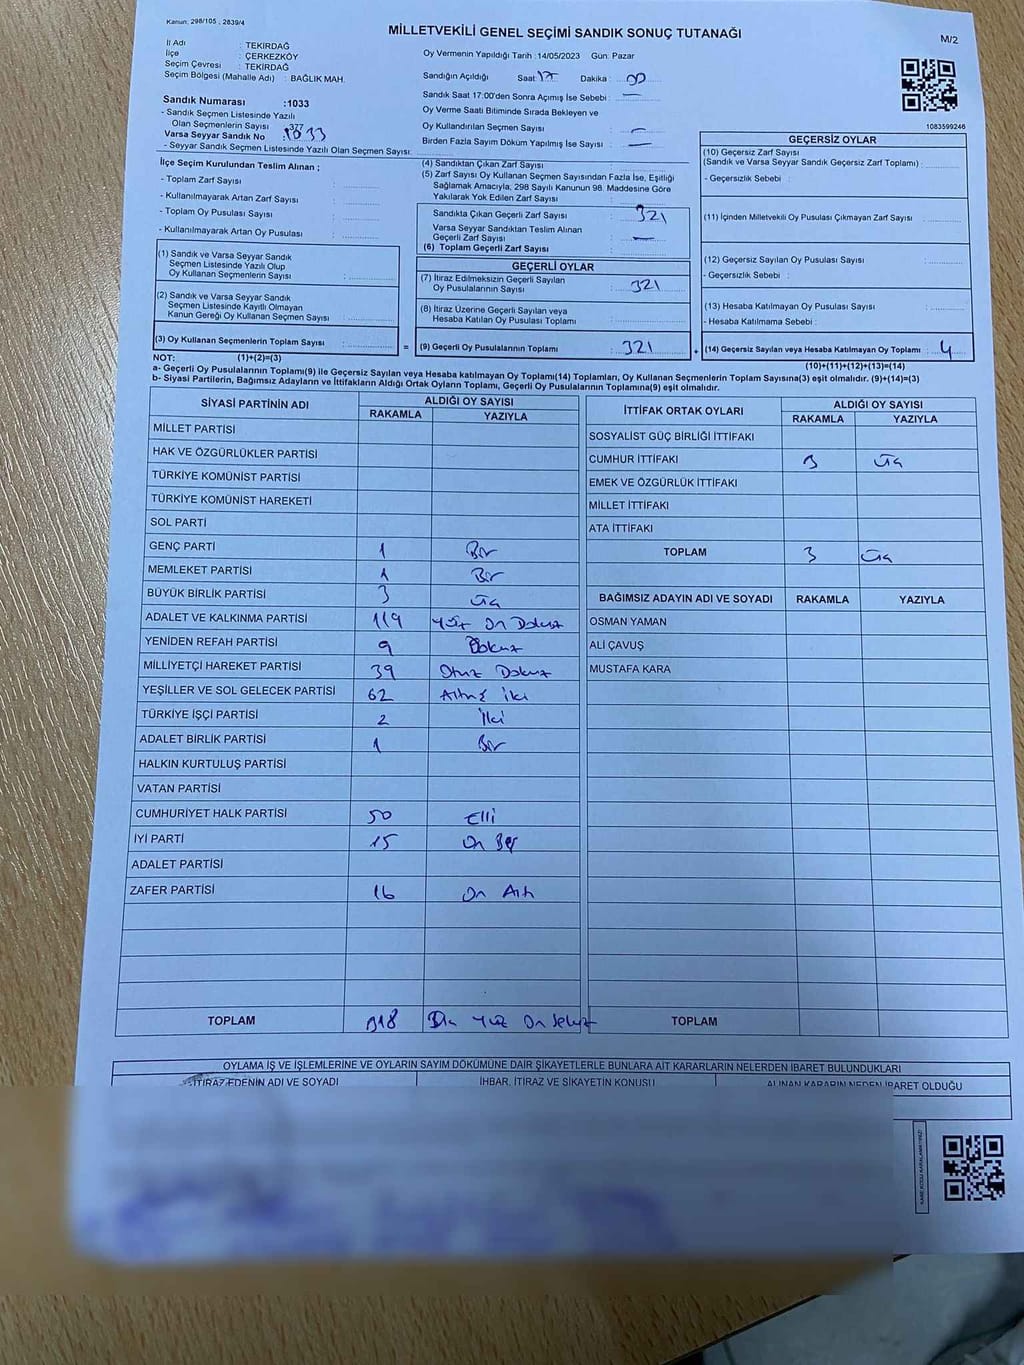 Kanun; 298/105 , 2839/4
MİLLETVEKİLİ GENEL SEÇİMİ SANDIK SONUÇ TUTANAĞI
M/2
İl Adı : TEKİRDAĞ
İlçe : ÇERKEZKÖY
Seçim Çevresi : TEKİRDAĞ
Seçim Bölgesi (Mahalle Adı) : BAĞLIK MAH.
Sandık Numarası :1033
- Sandık Seçmen Listesinde Yazılı
Olan Seçmenlerin Sayısı :377
Varsa Seyyar Sandık No : 1033
- Seyyar Sandık Seçmen Listesinde Yazılı Olan Seçmen Sayısı:
İlçe Seçim Kurulundan Teslim Alınan ;
- Toplam Zarf Sayısı :
- Kullanılmayarak Artan Zarf Sayısı :
- Toplam Oy Pusulası Sayısı :
- Kullanılmayarak Artan Oy Pusulası :
(1) Sandık ve Varsa Seyyar Sandık
Seçmen Listesinde Yazılı Olup
Oy Kullanan Seçmenlerin Sayısı :
(2) Sandık ve Varsa Seyyar Sandık
Seçmen Listesinde Kayıtlı Olmayan
Kanun Gereği Oy Kullanan Seçmen Sayısı :
(3) Oy Kullanan Seçmenlerin Toplam Sayısı :
Oy Vermenin Yapıldığı Tarih :14/05/2023 Gün: Pazar
Sandığın Açıldığı Saat 17 Dakika : 00
Sandık Saat 17:00'den Sonra Açılmış İse Sebebi : —
Oy Verme Saati Bitiminde Sırada Bekleyen ve
Oy Kullandırılan Seçmen Sayısı : —
Birden Fazla Sayım Döküm Yapılmış İse Sayısı : —
(4) Sandıktan Çıkan Zarf Sayısı :
(5) Zarf Sayısı Oy Kullanan Seçmen Sayısından Fazla İse, Eşitliği
Sağlamak Amacıyla, 298 Sayılı Kanunun 98. Maddesine Göre
Yakılarak Yok Edilen Zarf Sayısı :
Sandıkta Çıkan Geçerli Zarf Sayısı : 321
Varsa Seyyar Sandıktan Teslim Alınan
Geçerli Zarf Sayısı : —
(6) Toplam Geçerli Zarf Sayısı
GEÇERLİ OYLAR
(7) İtiraz Edilmeksizin Geçerli Sayılan
Oy Pusulalarının Sayısı : 321
(8) İtiraz Üzerine Geçerli Sayılan veya
Hesaba Katılan Oy Pusulası Toplamı :
= (9) Geçerli Oy Pusulalarının Toplamı : 321 +
1083599246
GEÇERSİZ OYLAR
(10) Geçersiz Zarf Sayısı
(Sandık ve Varsa Seyyar Sandık Geçersiz Zarf Toplamı) :
- Geçersizlik Sebebi :
(11) İçinden Milletvekili Oy Pusulası Çıkmayan Zarf Sayısı :
(12) Geçersiz Sayılan Oy Pusulası Sayısı :
- Geçersizlik Sebebi :
(13) Hesaba Katılmayan Oy Pusulası Sayısı :
- Hesaba Katılmama Sebebi :
(14) Geçersiz Sayılan veya Hesaba Katılmayan Oy Toplamı : 4
NOT: (1)+(2)=(3) (10)+(11)+(12)+(13)=(14)
a- Geçerli Oy Pusulalarının Toplamı(9) ile Geçersiz Sayılan veya Hesaba katılmayan Oy Toplamı(14) Toplamları, Oy Kullanan Seçmenlerin Toplam Sayısına(3) eşit olmalıdır. (9)+(14)=(3)
b- Siyasi Partilerin, Bağımsız Adayların ve İttifakların Aldığı Ortak Oyların Toplamı, Geçerli Oy Pusulalarının Toplamına(9) eşit olmalıdır.
SİYASİ PARTİNİN ADI ALDIĞI OY SAYISI
RAKAMLA YAZIYLA
MİLLET PARTİSİ
HAK VE ÖZGÜRLÜKLER PARTİSİ
TÜRKİYE KOMÜNİST PARTİSİ
TÜRKİYE KOMÜNİST HAREKETİ
SOL PARTİ
GENÇ PARTİ 1 Bir
MEMLEKET PARTİSİ 1 Bir
BÜYÜK BİRLİK PARTİSİ 3 Üç
ADALET VE KALKINMA PARTİSİ 119 Yüz On Dokuz
YENİDEN REFAH PARTİSİ 9 Dokuz
MİLLİYETÇİ HAREKET PARTİSİ 39 Otuz Dokuz
YEŞİLLER VE SOL GELECEK PARTİSİ 62 Altmış İki
TÜRKİYE İŞÇİ PARTİSİ 2 İki
ADALET BİRLİK PARTİSİ 1 Bir
HALKIN KURTULUŞ PARTİSİ
VATAN PARTİSİ
CUMHURİYET HALK PARTİSİ 50 Elli
İYİ PARTİ 15 On Beş
ADALET PARTİSİ
ZAFER PARTİSİ 16 On Altı
TOPLAM 318 Üç Yüz On Sekiz
İTTİFAK ORTAK OYLARI ALDIĞI OY SAYISI
RAKAMLA YAZIYLA
SOSYALİST GÜÇ BİRLİĞİ İTTİFAKI
CUMHUR İTTİFAKI 3 Üç
EMEK VE ÖZGÜRLÜK İTTİFAKI
MİLLET İTTİFAKI
ATA İTTİFAKI
TOPLAM 3 Üç
BAĞIMSIZ ADAYIN ADI VE SOYADI RAKAMLA YAZIYLA
OSMAN YAMAN
ALİ ÇAVUŞ
MUSTAFA KARA
TOPLAM
OYLAMA İŞ VE İŞLEMLERİNE VE OYLARIN SAYIM DÖKÜMÜNE DAİR ŞİKAYETLERLE BUNLARA AİT KARARLARIN NELERDEN İBARET BULUNDUKLARI
İTİRAZ EDENİN ADI VE SOYADI İHBAR, İTİRAZ VE ŞİKAYETİN KONUSU ALINAN KARARIN NEDEN İBARET OLDUĞU